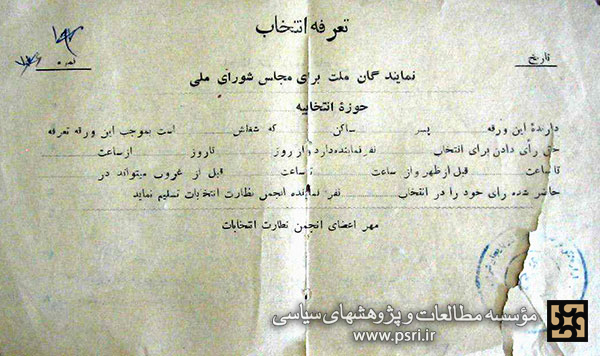 تعرفه انتخاب
تاریخ
نمره
نمایندگان ملت برای مجلس شورای ملی
حوزهٔ انتخابیه
دارندهٔ این ورقه پسر ساکن که شغلش است بموجب این ورقه تعرفه
حق رأی دادن برای انتخاب نفر نماینده دارد و از روز تا روز از ساعت
تا ساعت قبل از ظهر و از ساعت تا ساعت قبل از غروب میتواند در
حاضر شده رای خود را در انتخاب نفر نماینده انجمن نظارت انتخابات تسلیم نماید
مهر اعضای انجمن نظارت انتخابات
مؤسسه مطالعات و پژوهشهای سیاسی
www.psri.ir